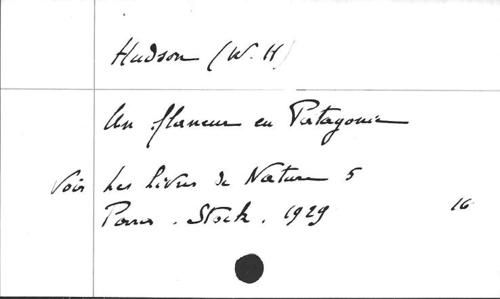 Hudson (W. H)
Un flaneur en Patagonie
Voir Les Livres de Nature 5
Paris . Stock . 1929 16